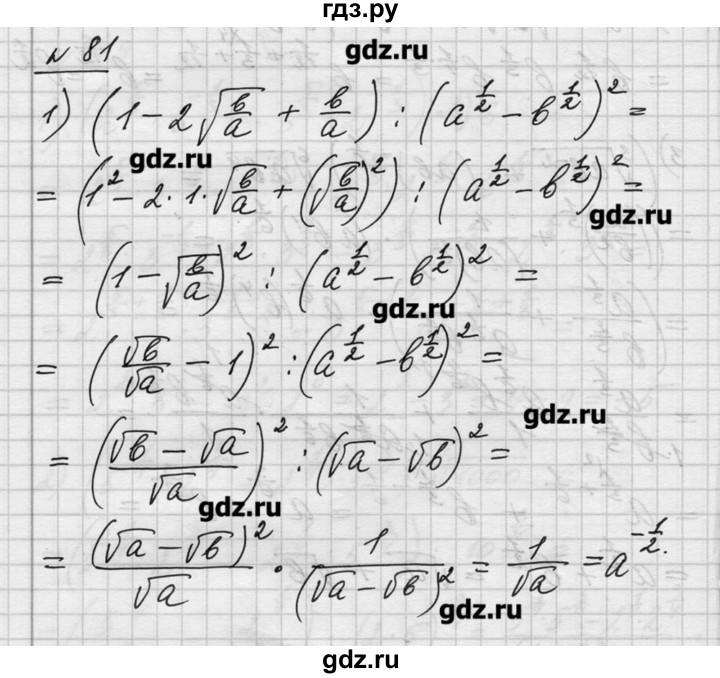 гдз.ру
№ 81
gdz.ru
1) (1 - 2√(в/a) + в/a) : (a^(1/2) - в^(1/2))² =
gdz.ru
= (1² - 2·1·√(в/a) + (√(в/a))²) : (a^(1/2) - в^(1/2))² =
gdz.ru
= (1 - √(в/a))² : (a^(1/2) - в^(1/2))² =
gdz.ru
= (√в/√a - 1)² : (a^(1/2) - в^(1/2))² =
gdz.ru
= ((√в - √a)/√a)² : (√a - √в)² =
gdz.ru
= (√a - √в)²/√a · 1/(√a - √в)² = 1/√a = a^(-1/2).
gdz.ru
gdz.ru